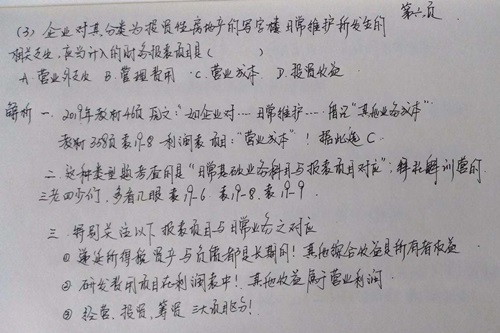 第六页
(3) 企业对其分类为投资性房地产的写字楼日常维护所发生的
相关支出，应当计入的财务报表项目是（　　）
A. 营业外支出 B. 管理费用 C. 营业成本 D. 投资收益
解析 一. 2019年教材46页 原文："如企业对…日常维护…借记"其他业务成本"
教材358页 表19-8 利润表项目："营业成本"！据此选C.
二. 这种类型题考查的是"日常基础业务科目与报表项目对应"：
三老四少们，多看几眼 表19-6. 表19-8. 表19-9
三 特别关注以下 报表项目与日常业务之对应
① 递延所得税资产与负债都是长期的！其他综合收益是所有者权益
② 研发费用项目在利润表中！其他收益属于营业利润.
③ 经营、投资、筹资 三大项目区分！